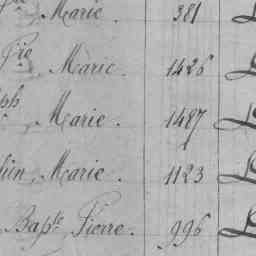 Marie. 381
Marie. 1426
ph Marie. 1487
Marie. 1123
Bapte. Pierre. 996